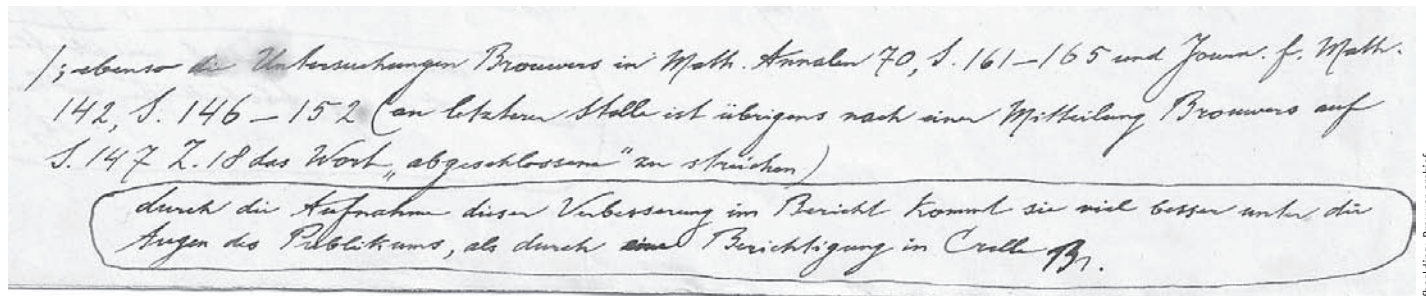 /; ebenso die Untersuchungen Brouwers in Math. Annalen 70, S. 161–165 und Journ. f. Math.
142, S. 146–152 (an letzterer Stelle ist übrigens nach einer Mitteilung Brouwers auf
S. 147 Z. 18 das Wort „abgeschlossene“ zu streichen)
durch die Aufnahme dieser Verbesserung im Bericht kommt sie viel besser unter die
Augen des Publikums, als durch eine Berichtigung in Crelle Br.